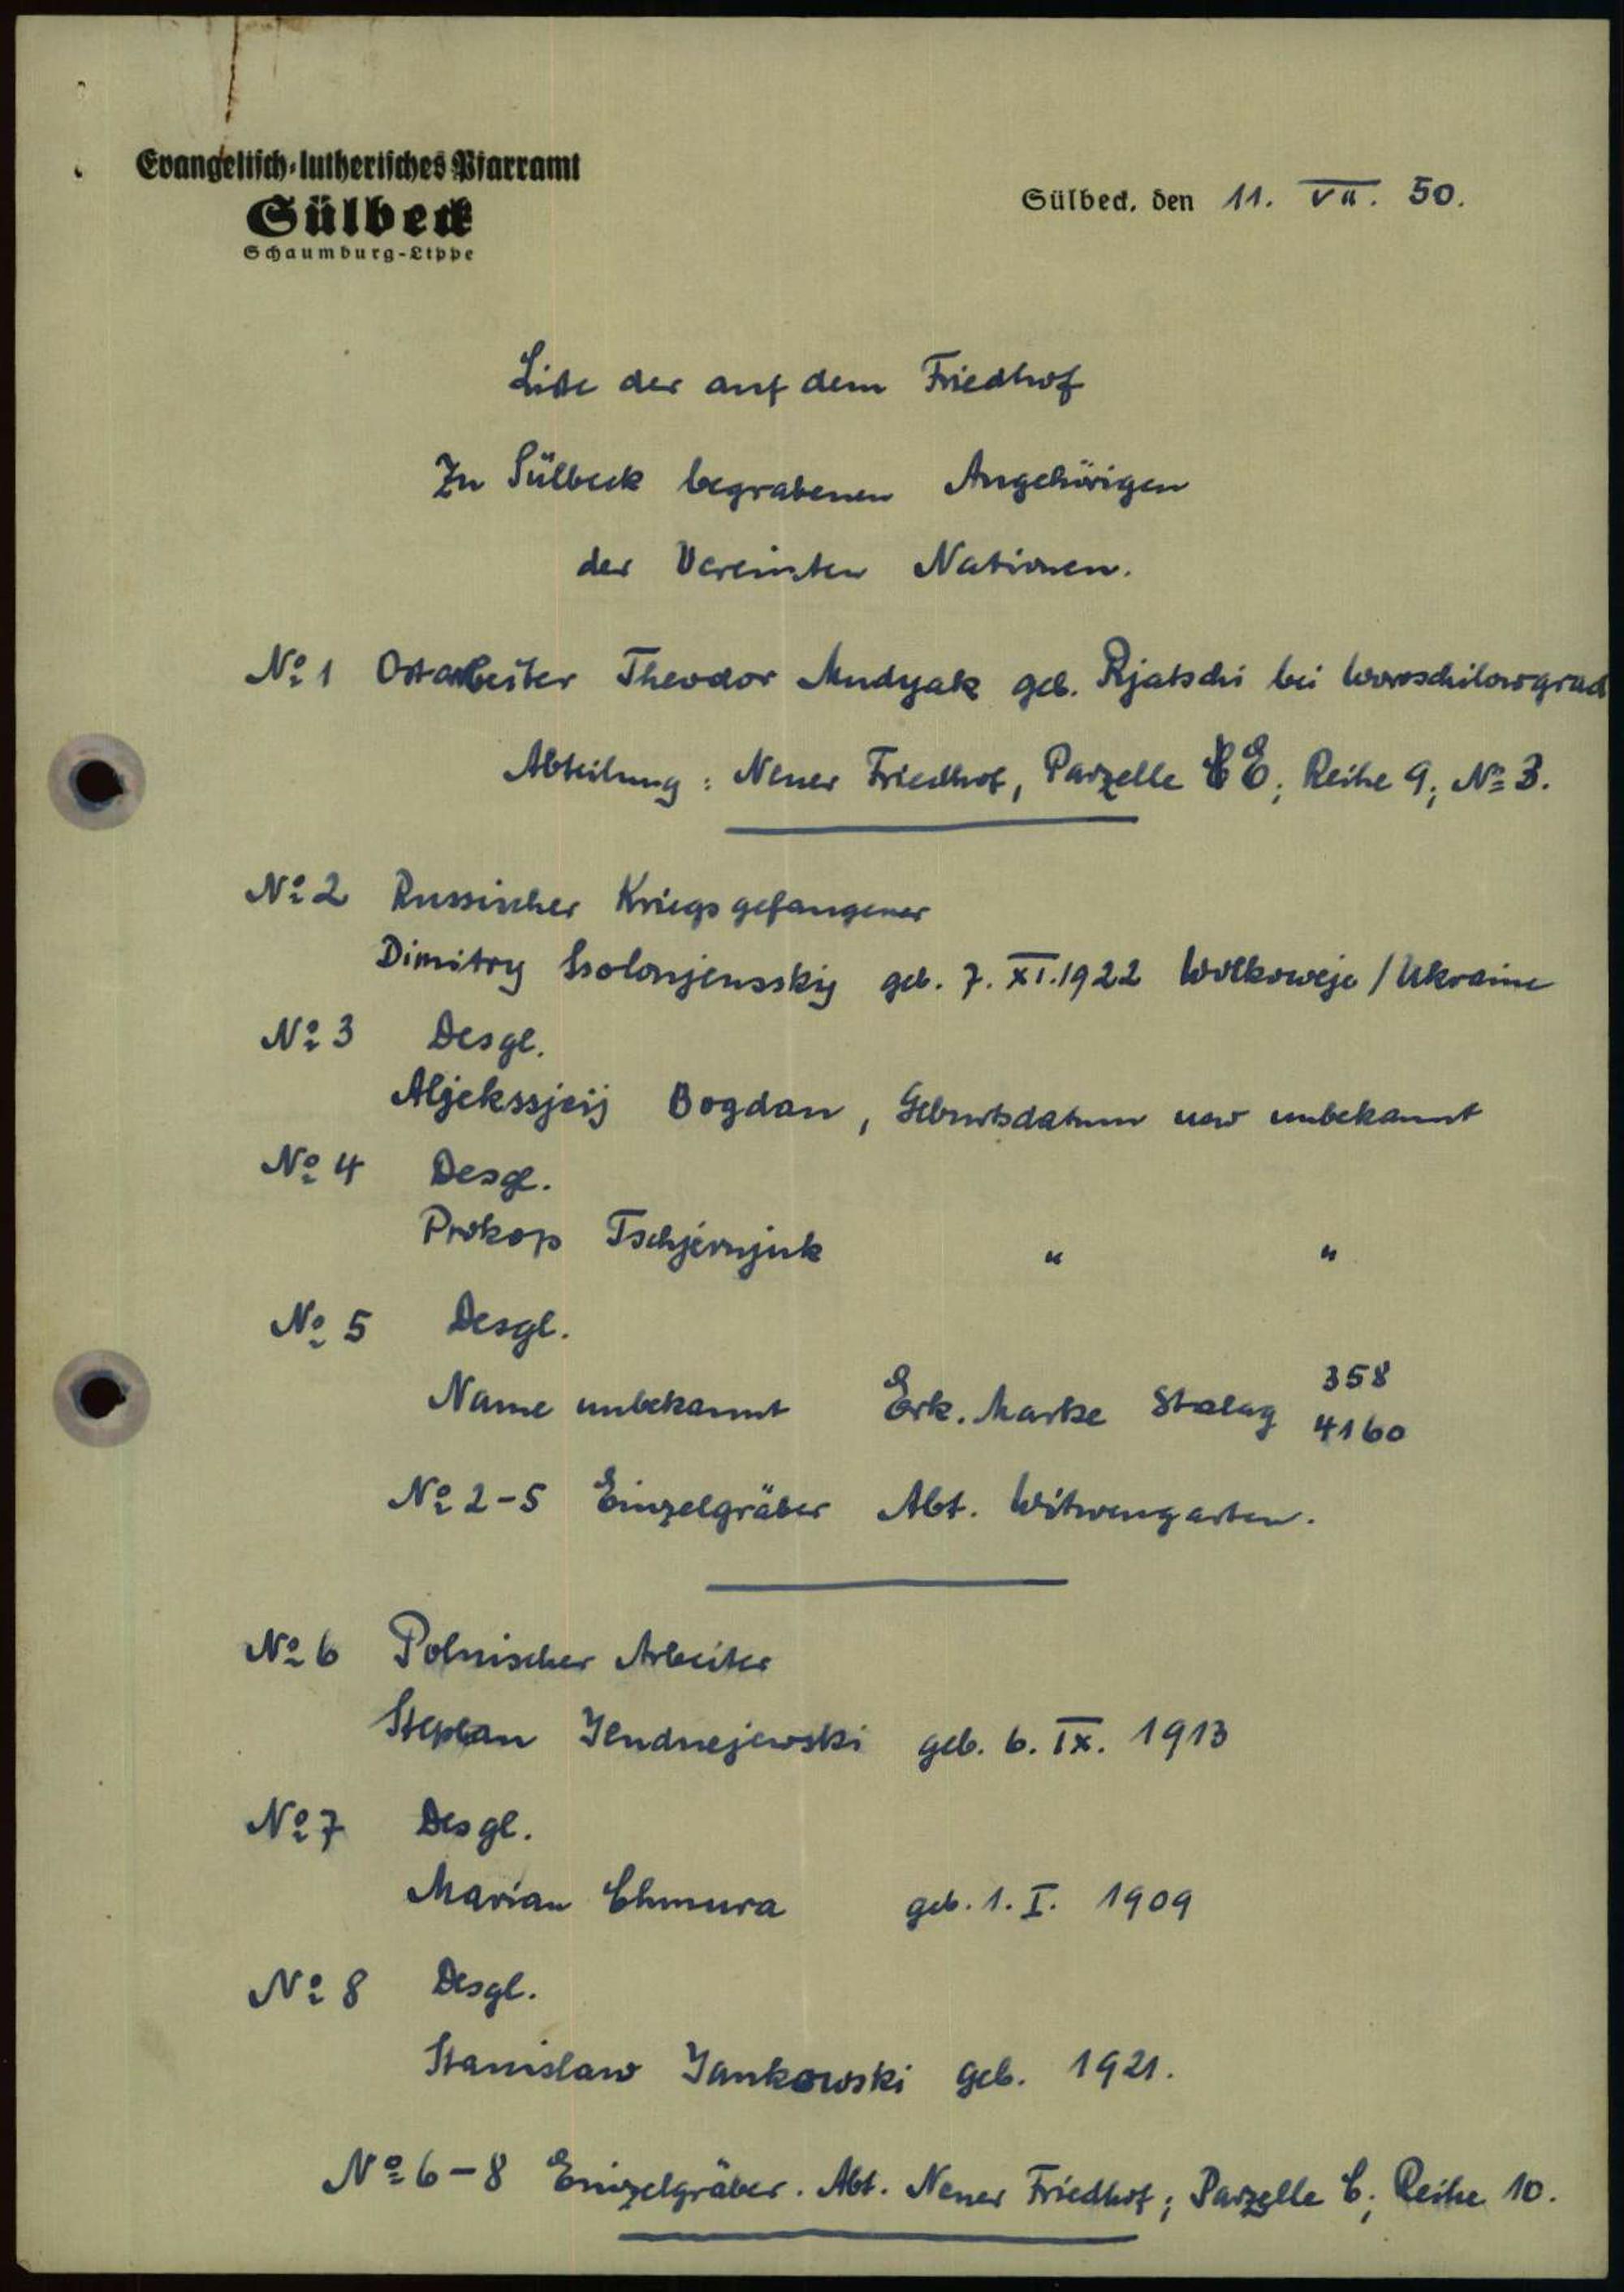 Evangelisch-lutherisches Pfarramt
Sülbeck
Schaumburg-Lippe
Sülbeck, den 11. VII. 50.
Liste der auf dem Friedhof
zu Sülbeck begrabenen Angehörigen
der Vereinten Nationen.
No 1 Ostarbeiter Theodor Mudyak geb. Rjatschi bei Woroschilowgrad
Abteilung: Neuer Friedhof, Parzelle E; Reihe 9; No 3.
No 2 Russischer Kriegsgefangener
Dimitry Ssolonjensskij geb. 7. XI. 1922 Wolkoweje / Ukraine
No 3 Desgl.
Aljekssjeij Bogdan, Geburtsdatum usw unbekannt
No 4 Desgl.
Prokop Tschjernjuk " "
No 5 Desgl.
Name unbekannt Erk. Marke Stalag 358 4160
No 2-5 Einzelgräber Abt. Witwengarten.
No 6 Polnischer Arbeiter
Stephan geb. 6. IX. 1913
No 7 Desgl.
Marian Chmura geb. 1. I. 1909
No 8 Desgl.
Stanislaw Jankowski geb. 1921.
No 6-8 Einzelgräber. Abt. Neuer Friedhof; Parzelle C; Reihe 10.